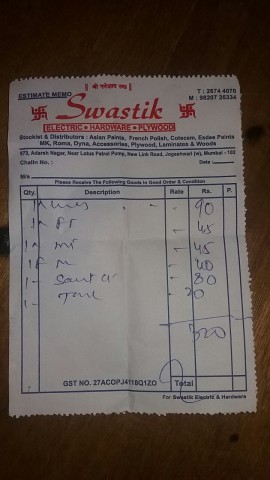 ॥ श्री गणेशाय नमः ॥
ESTIMATE MEMO
T : 2674 4070
M : 98207 26334
Swastik
ELECTRIC • HARDWARE • PLYWOOD
Stockist & Distributors : Asian Paints, French Polish, Cotscem, Esdee Paints
MK, Roma, Dyna, Accessories, Plywood, Laminates & Woods
Adarsh Nagar, Near Lotus Petrol Pump, New Link Road, Jogeshwari (w), Mumbai - 102
Challn No. :
Date
M/s
Please Receive The Following Goods in Good Order & Condition
Qty. Description Rate Rs. P.
90
45
45
40
80
20
320
GST NO. 27ACOPJ4118Q1ZO Total
For Swastik Electric & Hardware